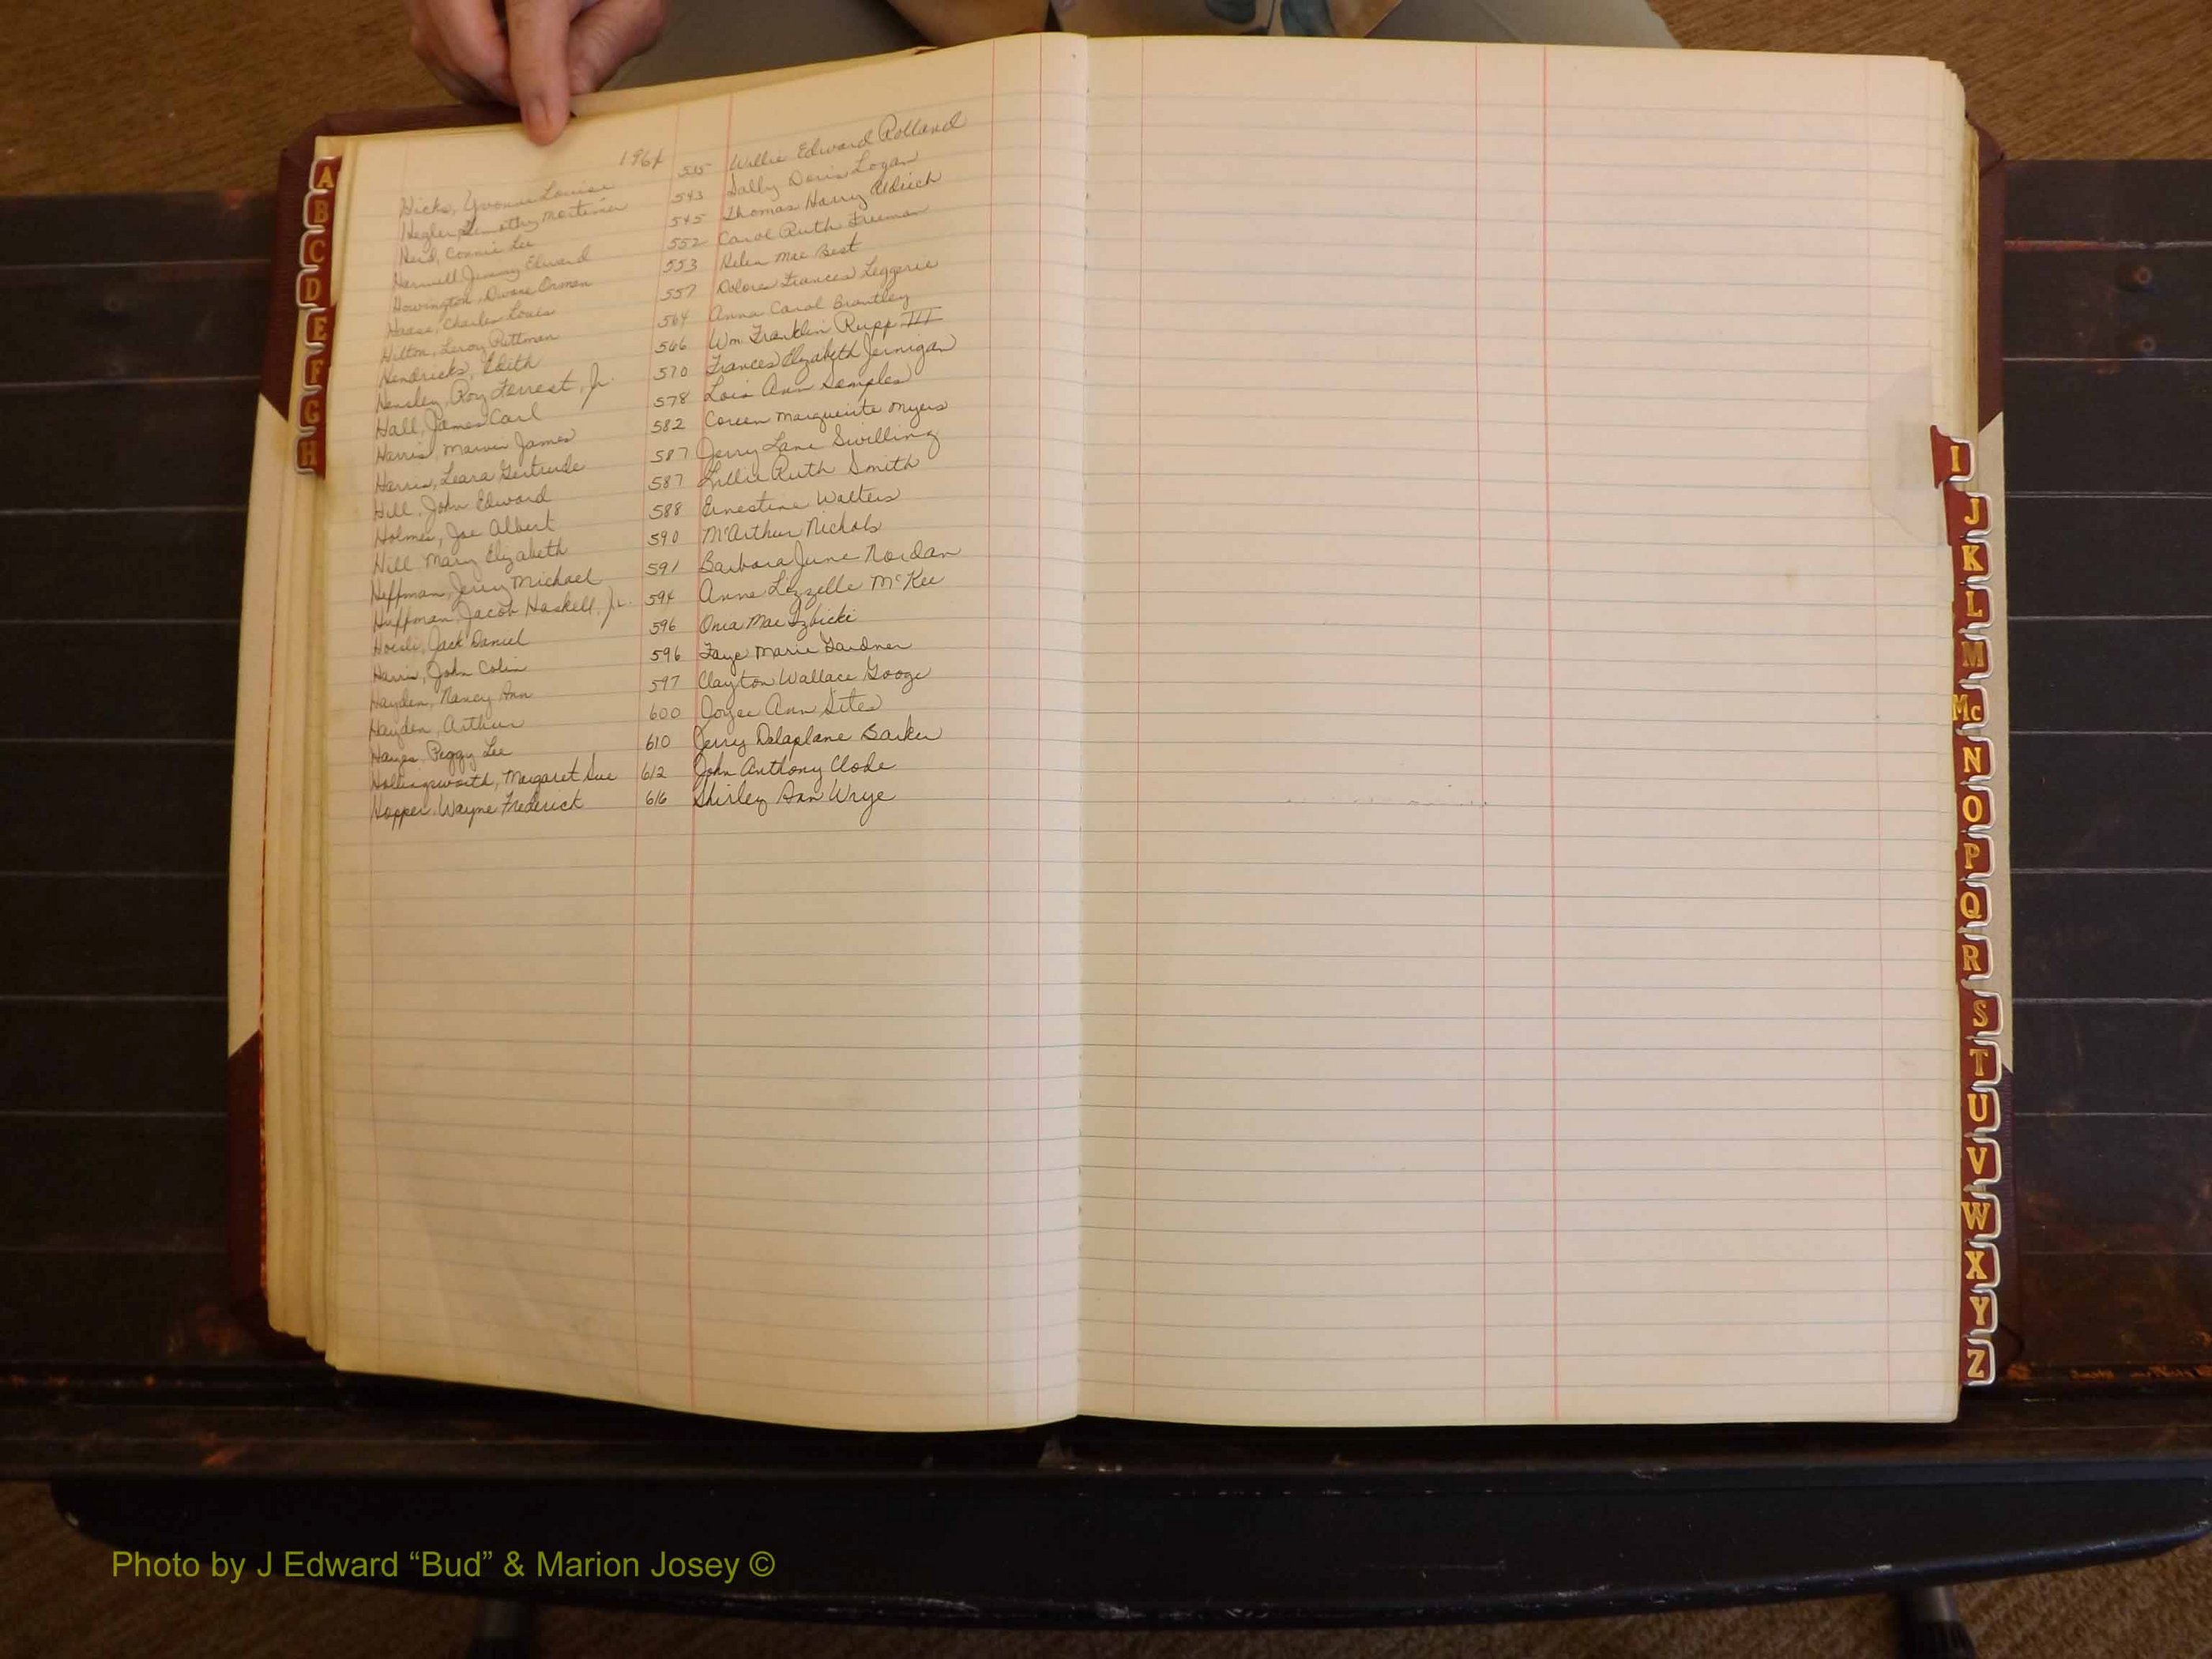 1964
Hicks, Yvonne Louise 515 Willie Edward Rolland
Hegler, Timothy Mortimer 543 Sally Doris Logan
Herd, Connie Lee 545 Thomas Harry Aldrich
Harwell Jimmy Edward 552 Carol Ruth Freeman
Howington, Duane Orman 553 Helen Mae Best
Haase, Charles Louis 557 Dolores Frances
Hilton, Leroy Pittman 564 Anna Carol Brantley
Hendricks, Edith 566 Wm Franklin Rupp III
Hensley, Roy Forrest, Jr. 570 Frances Elizabeth Jernigan
Hall, James Carl 578 Lois Ann Semples
Harris, Marvin James 582 Coreen Marguerite Myers
Harris, Leara Gertrude 587 Jerry Lane Swilling
Hill, John Edward 587 Lillie Ruth Smith
Holmes, Joe Albert 588 Ernestine Walters
Hill Mary Elizabeth 590 McArthur Nichols
Heffman, Jerry Michael 591 Barbara June Nordan
Huffman, Jacob Haskell, Jr. 594 Anne Lizzelle McKee
Jack Daniel 596 Onia Mae Izbicki
Harris, John Colin 596 Faye Marie Gardner
Hayden, Nancy Ann 597 Clayton Wallace Googe
Hayden, Arthur 600 Joyce Ann Sites
Hayes, Peggy Lee 610 Jerry Delaplane Barker
Hollingsworth, Margaret Sue 612 John Anthony Clode
Hopper, Wayne Frederick 616 Shirley Ann Wrye
A
B
C
D
E
F
G
H
I
J
K
L
M
Mc
N
O
P
Q
R
S
T
U
V
W
X
Y
Z
Photo by J Edward “Bud” & Marion Josey ©